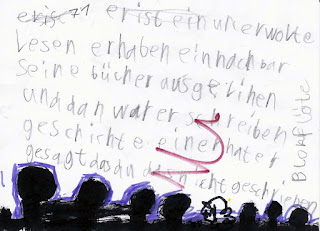 er ist ein unerwolte
Lesen er haben ein nachbar
seine bücher ausgelihen
und dan war er schreiben
geschichte einer hat er
gesagt das du das nicht geschrieben
Blohflöte